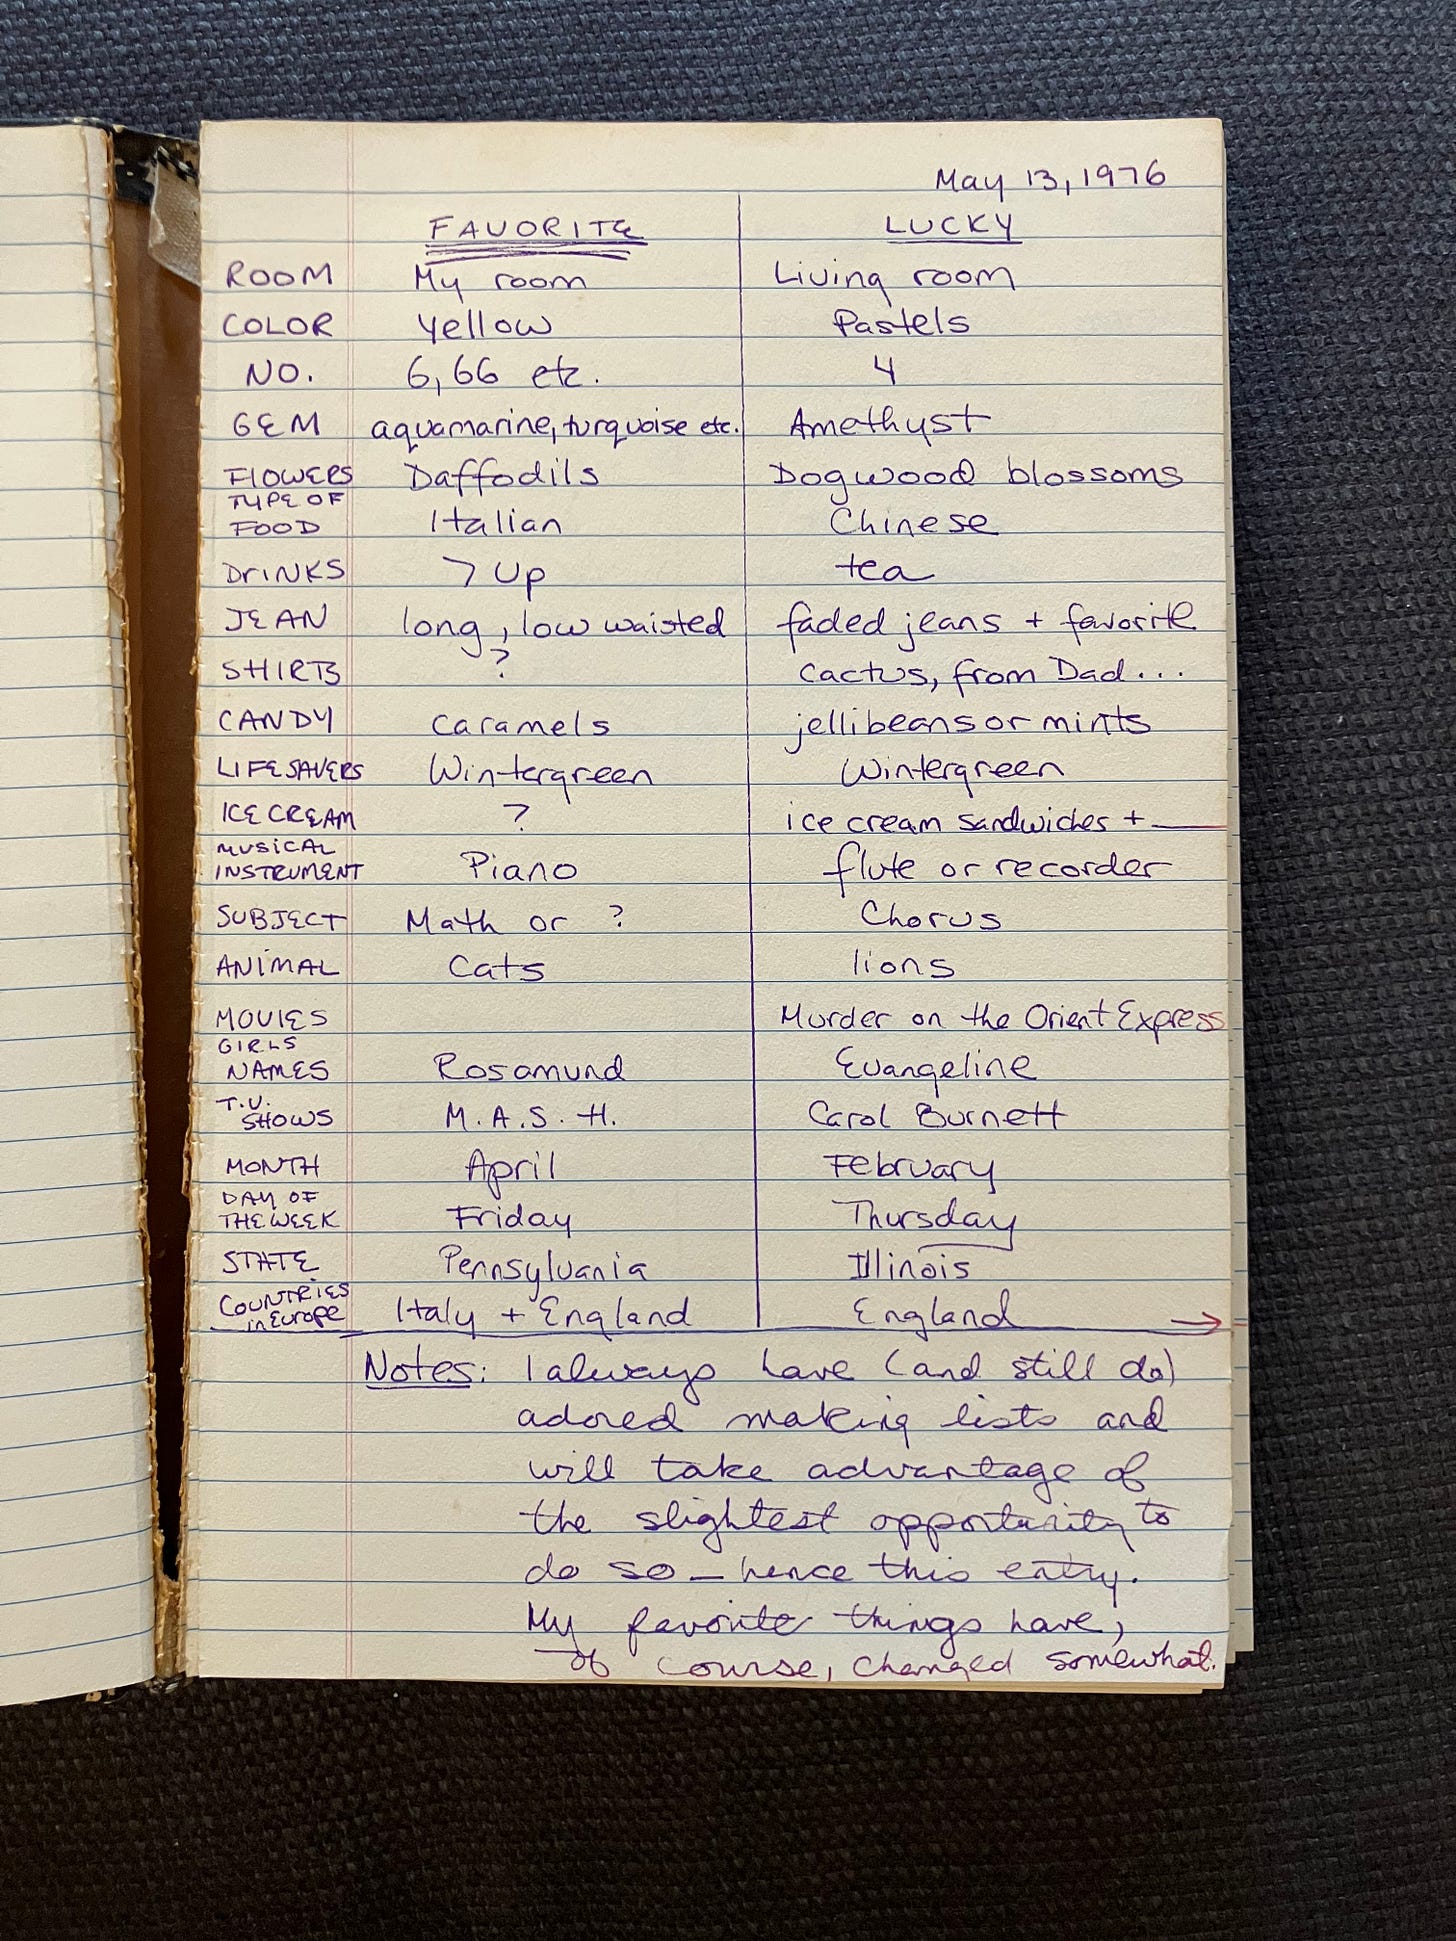 May 13, 1976
FAVORITE LUCKY
ROOM My room Living room
COLOR Yellow Pastels
NO. 6, 66 etc. 4
GEM aquamarine, turquoise etc. Amethyst
FLOWERS Daffodils Dogwood blossoms
TYPE OF
FOOD Italian Chinese
DRINKS 7 Up tea
JEAN long, low waisted faded jeans + favorite
SHIRTS ? cactus, from Dad...
CANDY caramels jellibeans or mints
LIFESAVERS Wintergreen Wintergreen
ICE CREAM ? ice cream sandwiches +
MUSICAL
INSTRUMENT Piano flute or recorder
SUBJECT Math or ? Chorus
ANIMAL Cats lions
MOVIES Murder on the Orient Express
GIRLS
NAMES Rosamund Evangeline
T.V.
SHOWS M.A.S.H. Carol Burnett
MONTH April February
DAY OF
THE WEEK Friday Thursday
STATE Pennsylvania Illinois
COUNTRIES
in Europe Italy + England England →
Notes: I always have (and still do)
adored making lists and
will take advantage of
the slightest opportunity to
do so — hence this entry.
My favorite things have,
of course, changed somewhat.